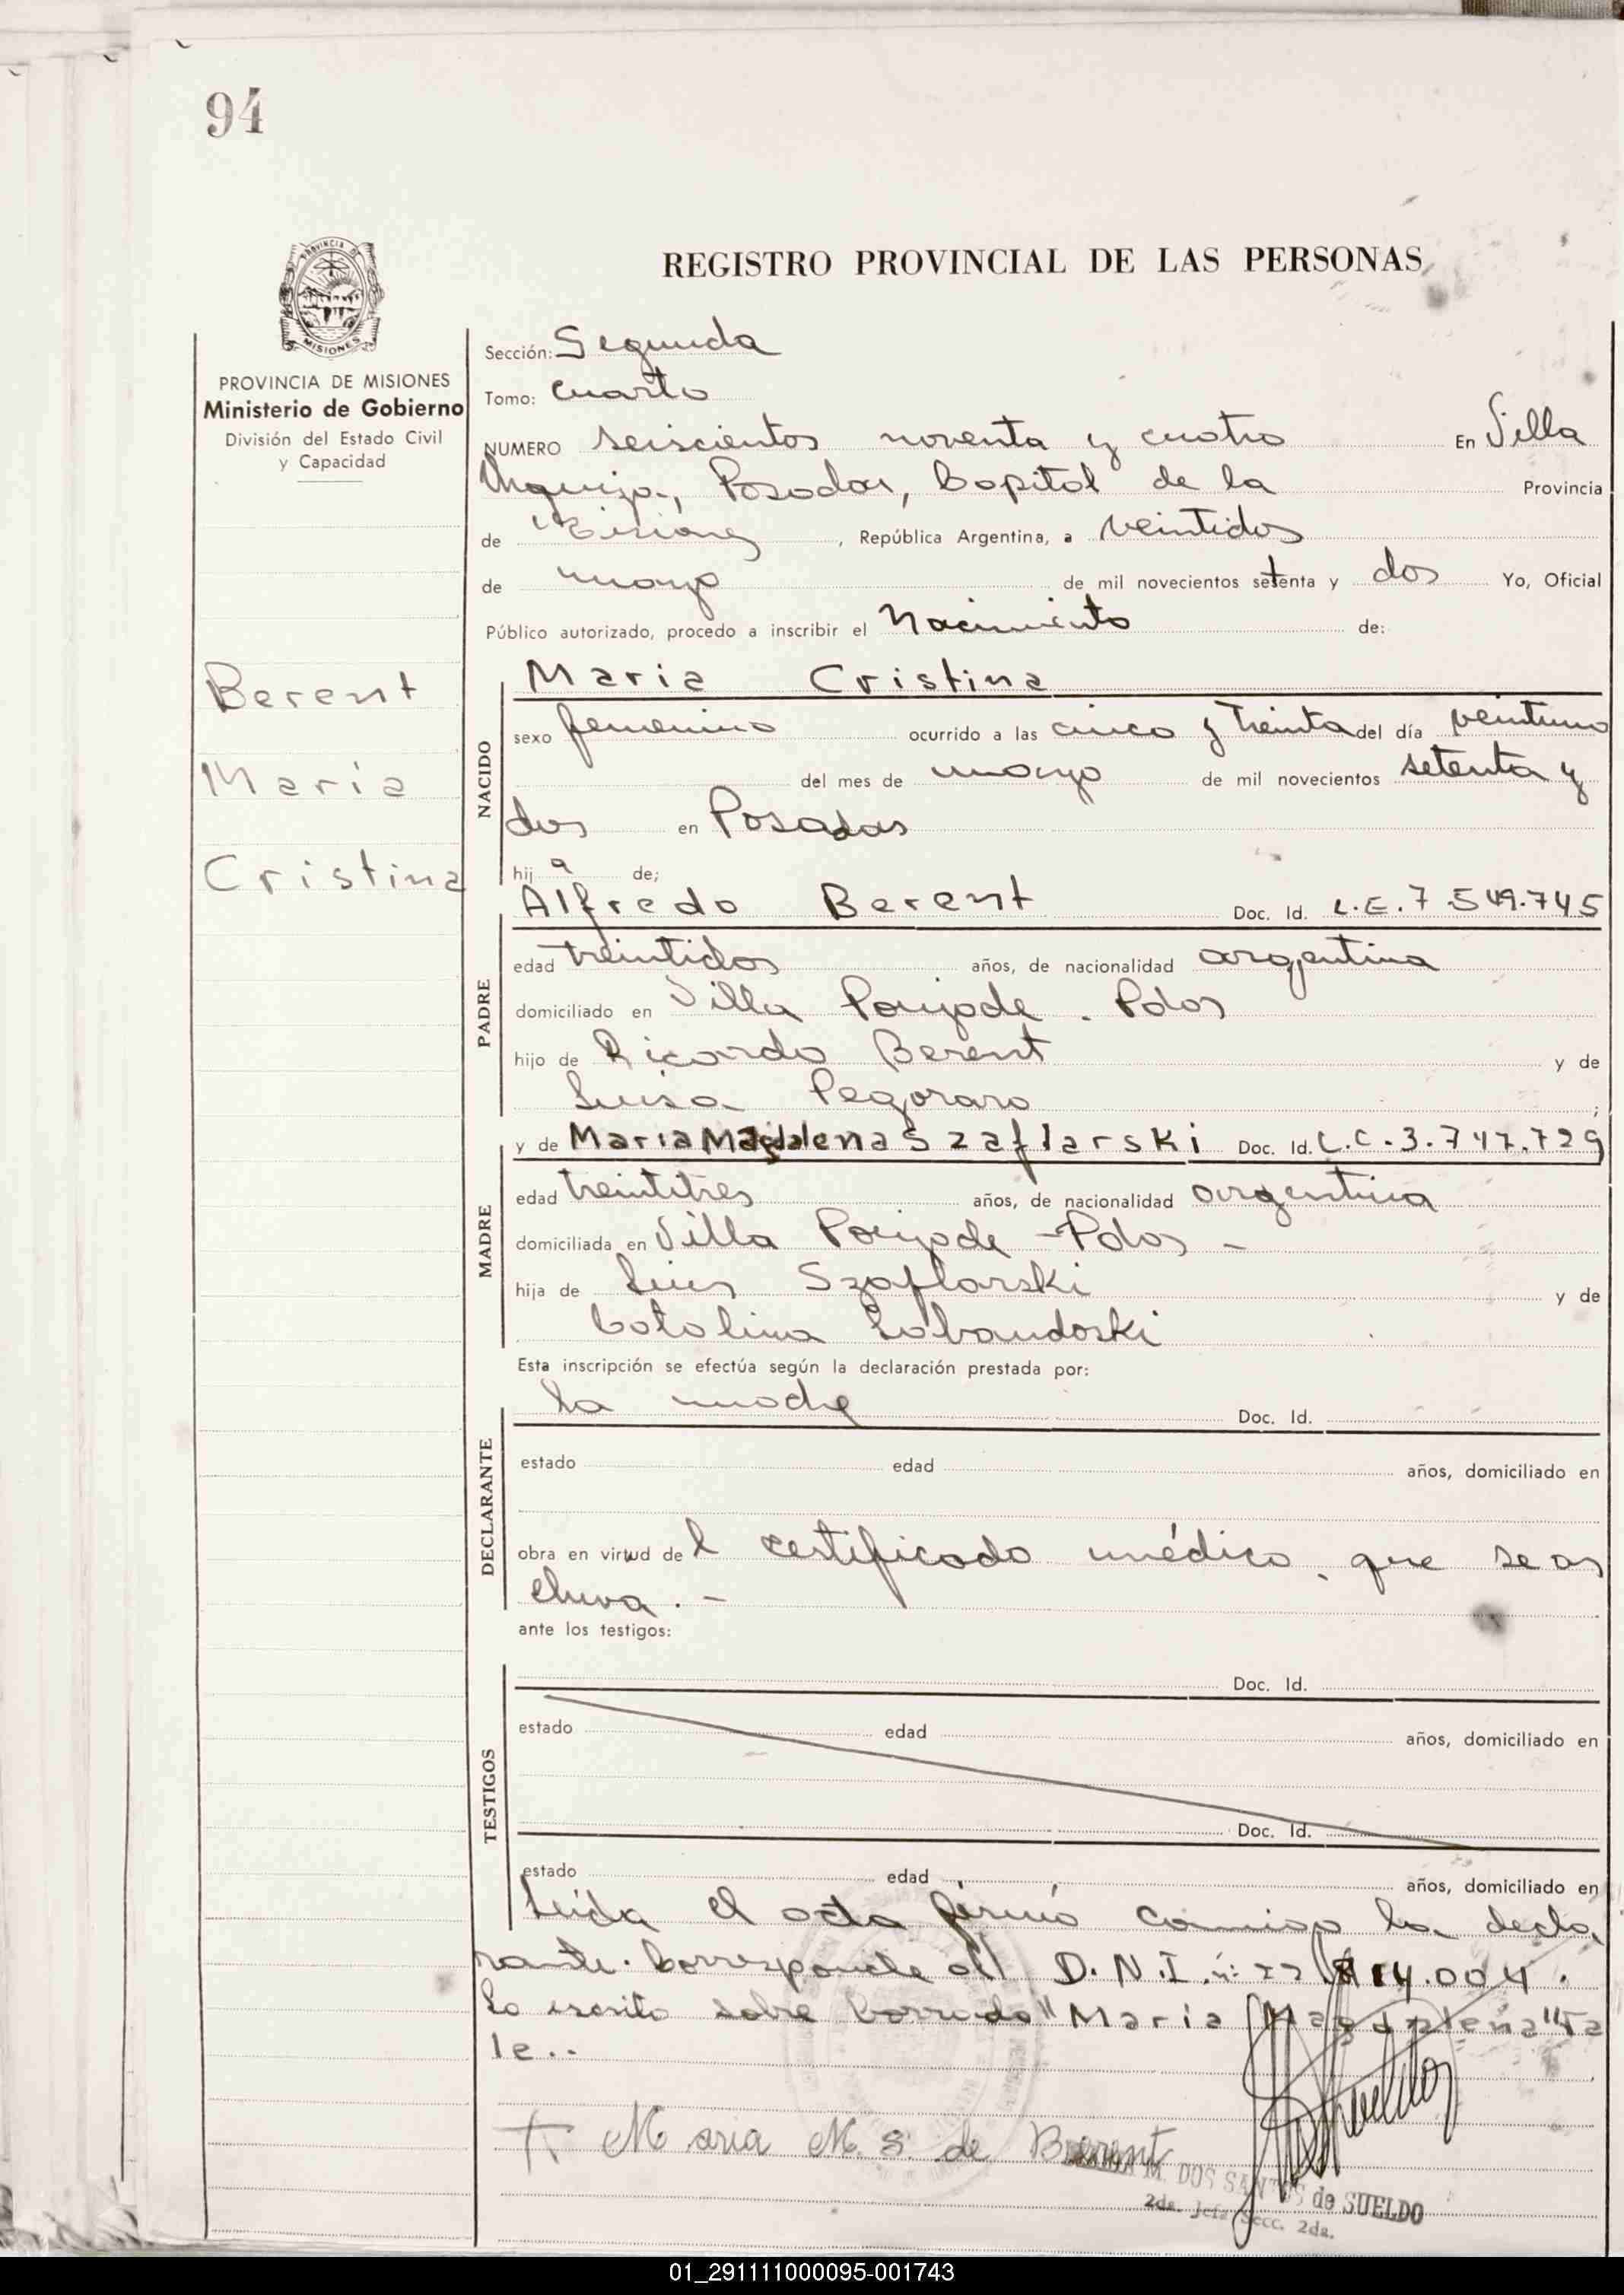 94
REGISTRO PROVINCIAL DE LAS PERSONAS
PROVINCIA DE MISIONES
Ministerio de Gobierno
División del Estado Civil
y Capacidad
Sección: Segunda
Tomo: Cuarto
NUMERO seiscientos noventa y cuatro En Villa
Urquiza, Posadas, Capital de la Provincia
de Misiones, República Argentina, a veintidos
de mayo de mil novecientos setenta y dos Yo, Oficial
Público autorizado, procedo a inscribir el Nacimiento de:
Berent
María
Cristina
NACIDO
Maria Cristina
sexo femenino ocurrido a las cinco y treinta del día veintiuno
del mes de mayo de mil novecientos setenta y
dos en Posadas
hij a de;
PADRE
Alfredo Berent Doc. Id. L.E. 7.549.745
edad treintidos años, de nacionalidad argentina
domiciliado en Villa Poujade. Pdas
hijo de Ricardo Berent y de
Luisa Pegoraro ;
MADRE
y de Maria Magdalena Szaflarski Doc. Id. L.C. 3.747.729
edad treintitres años, de nacionalidad argentina
domiciliada en Villa Poujade - Pdas -
hija de Luis Szaflarski y de
Catalina Labandoski
Esta inscripción se efectúa según la declaración prestada por:
DECLARANTE
la madre Doc. Id.
estado edad años, domiciliado en
obra en virtud de l certificado médico, que se ar
chiva. -
ante los testigos:
TESTIGOS
Doc. Id.
estado edad años, domiciliado en
Doc. Id.
estado edad años, domiciliado en
Leída el acta firmó conmigo la decla
rante. Corresponde al D.N.I. n: 14.004.
Lo escrito sobre borrado "Maria Magdalena" Va
le..
Maria M. S. de Berent
M. DOS SANTOS de SUELDO
2da. Jefa Secc. 2da.
01_291111000095-001743